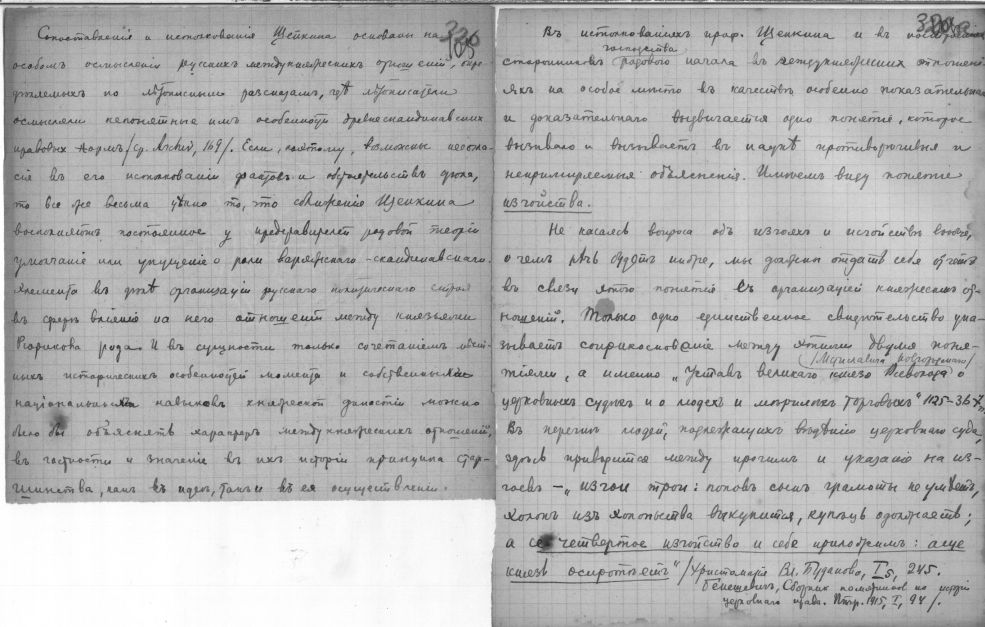 Сопоставленія и истолкованія Щепкина основаны на
особомъ осмысленіи русскихъ междукняжескихъ отношеній, опре-
дѣляемыхъ по лѣтописнымъ разсказамъ, гдѣ лѣтописатели
осмысляли непонятныя имъ особенности древнескандинавскихъ
правовыхъ нормъ /ср. Archiv, 169/. Если, поэтому, возможны несогла-
сіе въ его истолкованіи фактовъ и обстоятельствъ дѣла,
то все же весьма цѣнно то, что сближенія Щепкина
восполняютъ постоянное у представителей родовой теоріи
умолчаніе или упущеніе о роли варяжскаго-скандинавскаго
элемента въ дѣлѣ организаціи русскаго политическаго строя
въ сферѣ вліянія на него отношеній между князьями
Рюрикова рода. И въ сущности только сочетаніемъ мѣст-
ныхъ историческихъ особенностей момента и собственныхъ
національныхъ навыковъ княжеской династіи можно
было бы объяснять характеръ междукняжескихъ отношеній,
въ частности и значеніе въ ихъ исторіи принципа стар-
шинства, какъ въ идеѣ, такъ и въ ея осуществленіи.
Въ истолкованіяхъ проф. Щепкина и въ
господства
сторонниковъ родового начала въ междукняжескихъ отношені-
яхъ на особое мѣсто въ качествѣ особенно показательнаго
и доказательнаго выдвигается одно понятіе, которое
вызывало и вызываетъ въ наукѣ противорѣчивыя и
непримиримыя объясненія. Имѣемъ въ виду понятіе
изгойства.
Не касаясь вопроса объ изгояхъ и изгойствѣ вообще,
о чемъ рѣчь будетъ ниже, мы должны отдать себѣ отчетъ
въ связи этого понятія съ организаціей княжескихъ от-
ношеній. Только одно единственное свидѣтельство ука-
зываетъ соприкосновеніе между этими двумя поня-
/Мстиславича новгородскаго/
тіями, а именно „Уставъ великаго князя Всеволода о
церковныхъ судѣхъ и о людехъ и о мѣрилахъ торговыхъ" 1125-36 г.
Въ перечнѣ людей, подлежащихъ вѣдѣнію церковнаго суда,
здѣсь приводится между прочимъ и указаніе на из-
гоевъ – „изгои трои: поповъ сынъ грамоты не умѣетъ,
холопъ изъ холопьства выкупится, купецъ одолжаетъ;
а се четвертое изгойство и себе приложимъ: аще
князь осиротѣетъ" /Христоматія Вл. Буданова, I5, 245.
Бенешевичъ, Сборникъ памятниковъ по исторіи
церковнаго права. Птр. 1915, I, 94/.